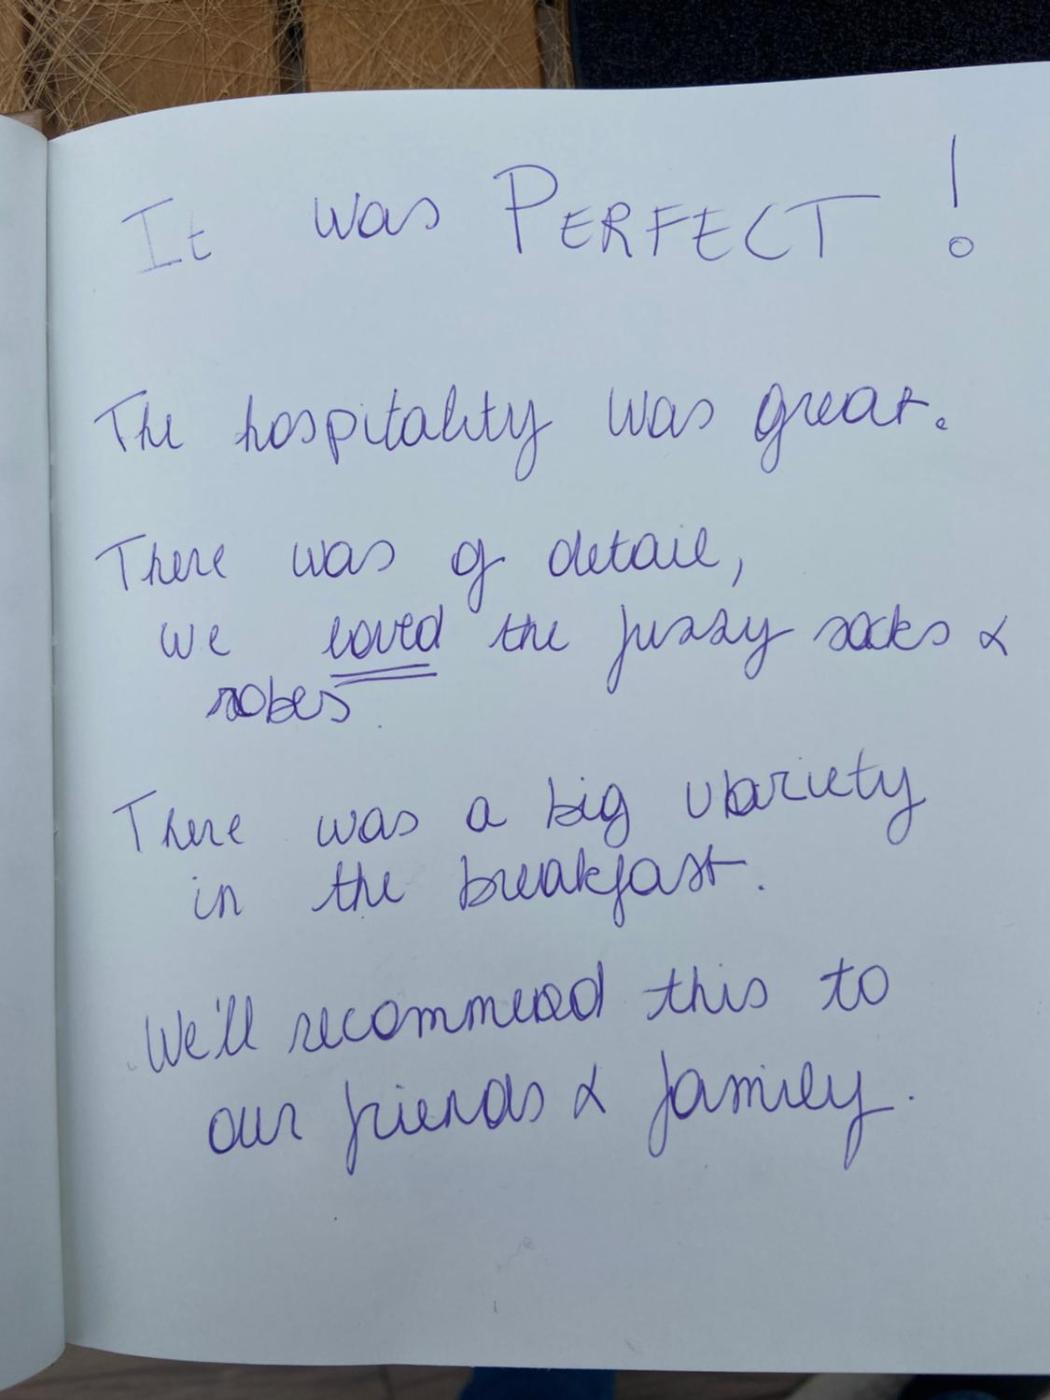 It was PERFECT!
The hospitality was great.
There was of detail,
we loved the fuzzy socks &
robes.
There was a big variety
in the breakfast.
We'll recommend this to
our friends & family.